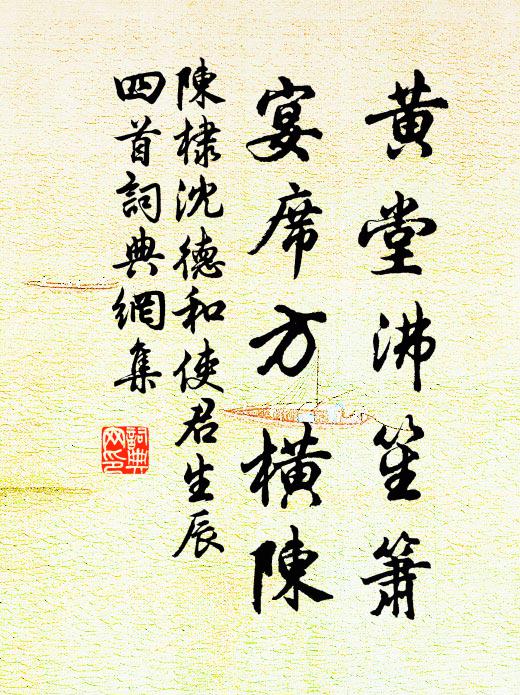 黄堂沸笙簫
宴席方橫陳
陳棣沈德和使君生辰
四首詞典網集
詞典